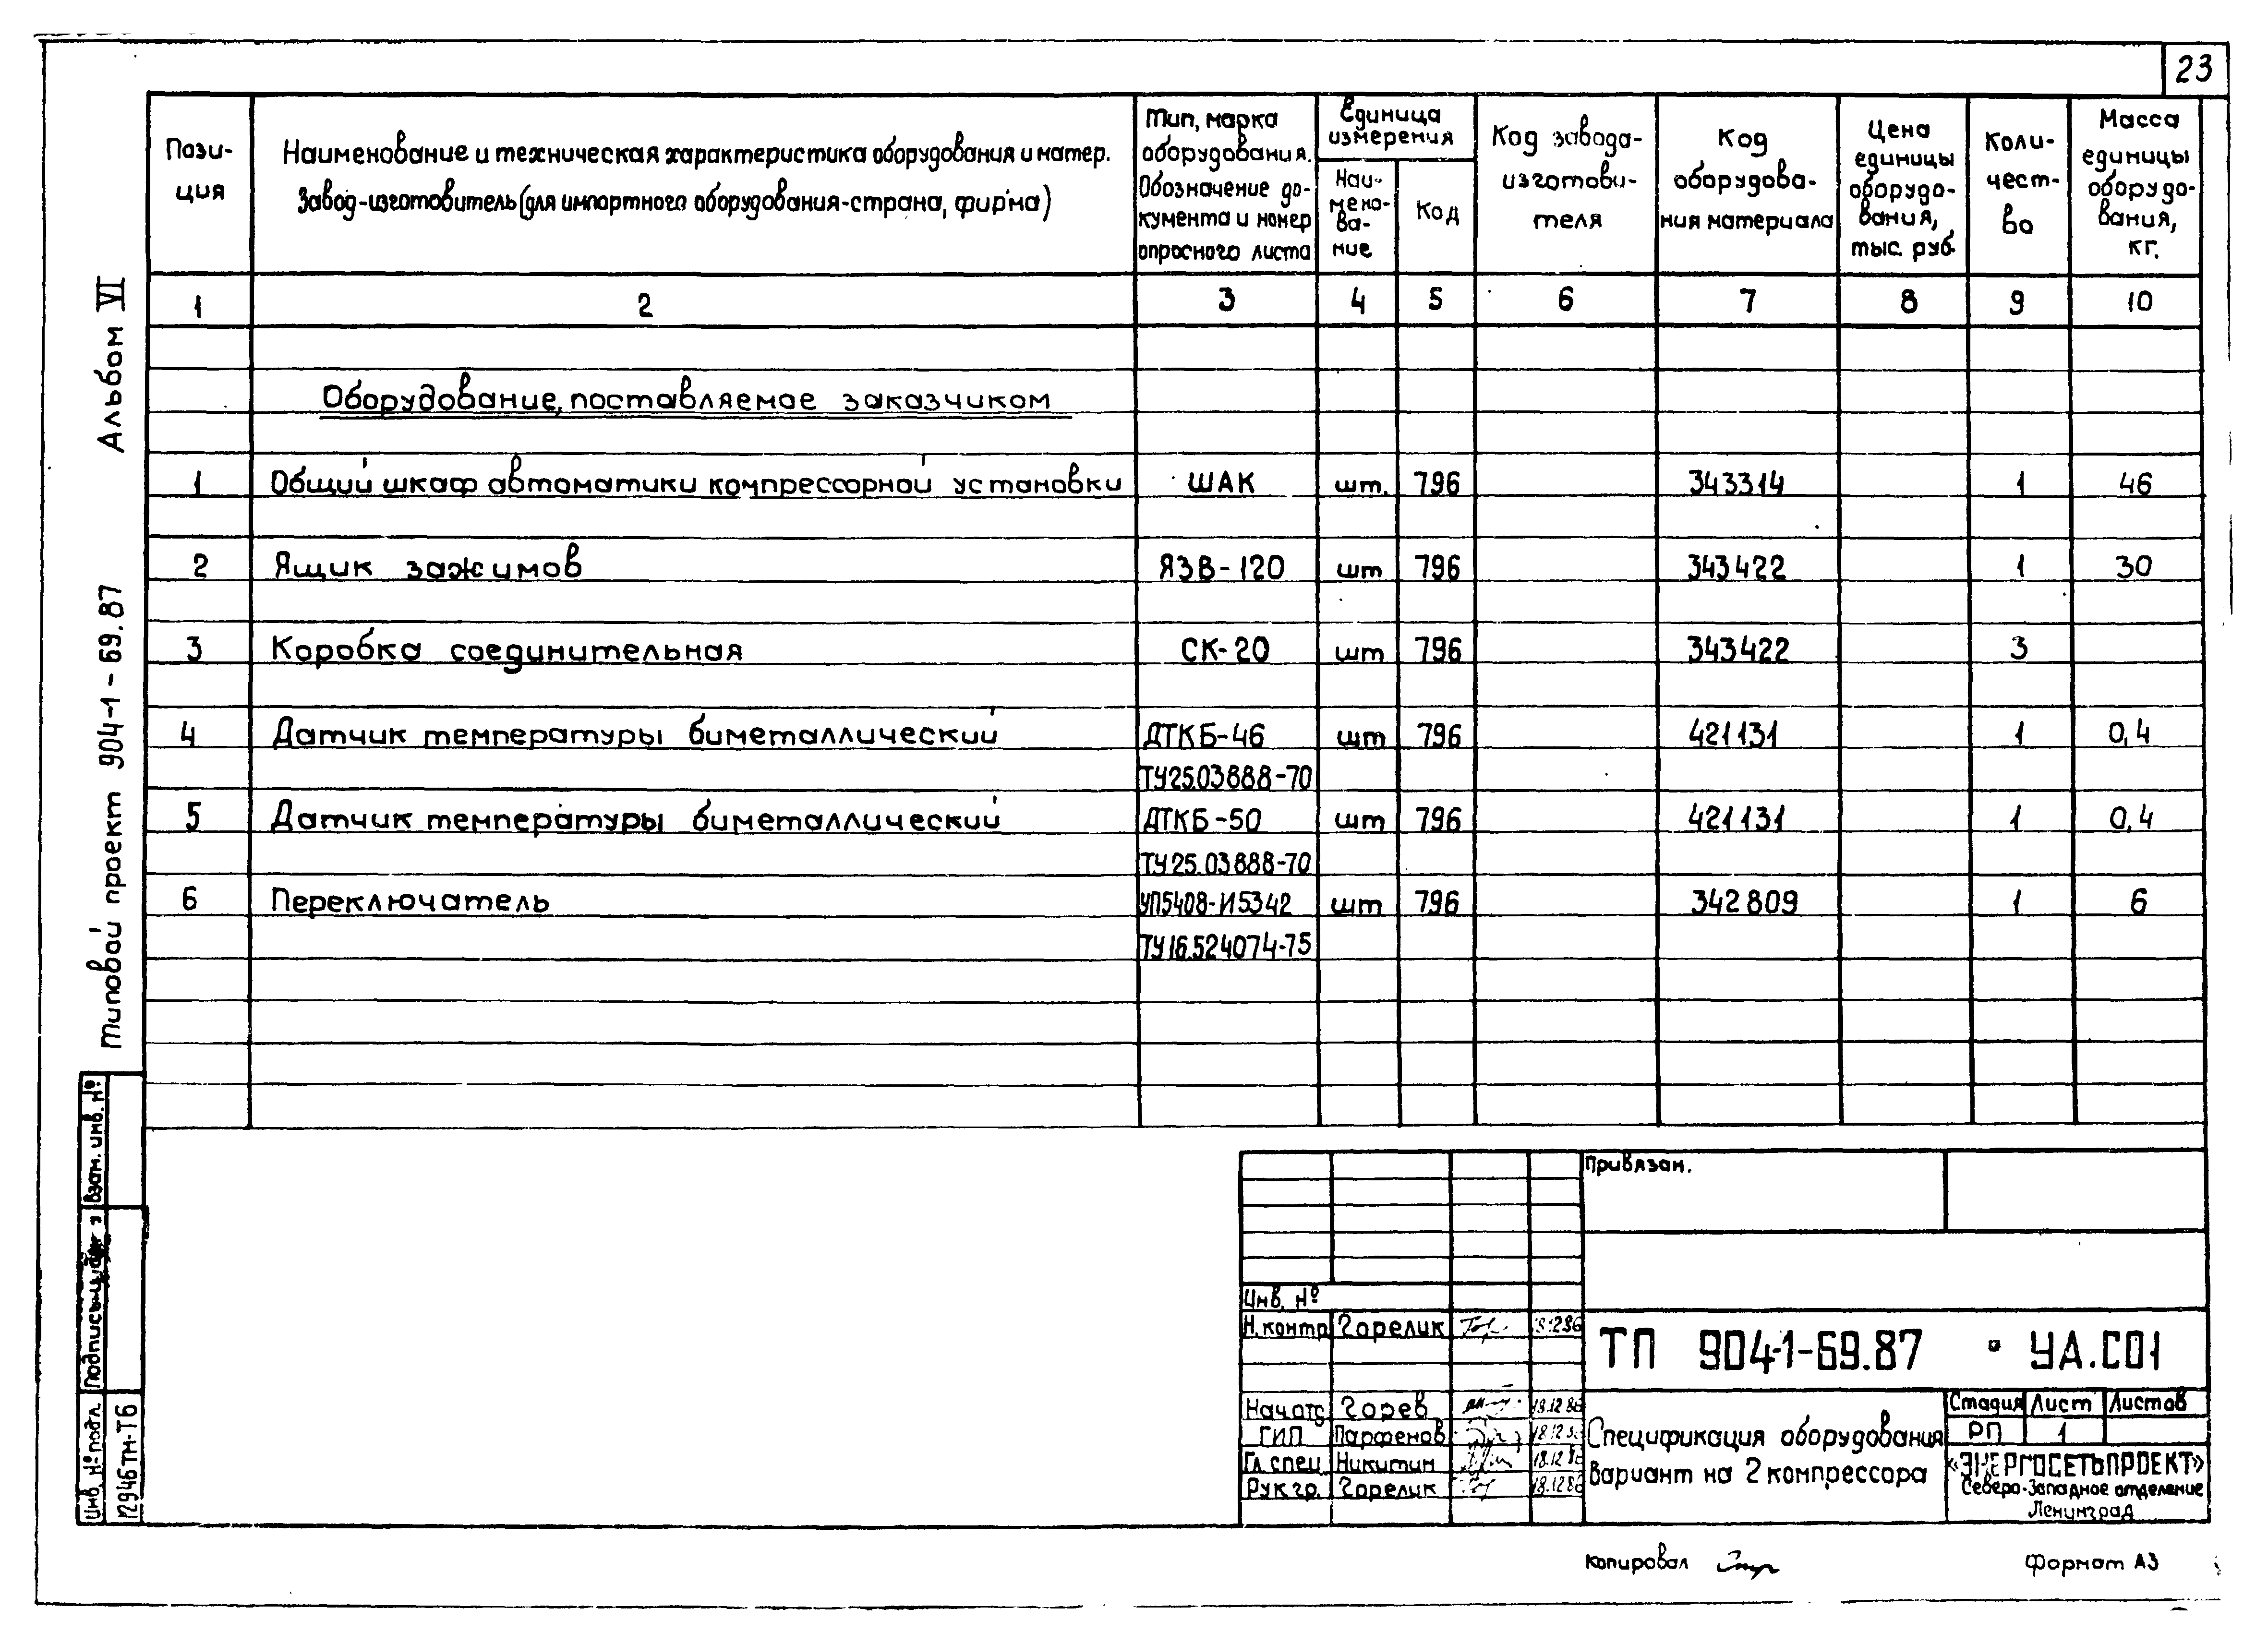 23
Пози-
ция
Наименование и техническая характеристика оборудования и матер.
Завод-изготовитель (для импортного оборудования-страна, фирма)
Тип, марка
оборудования.
Обозначение до-
кумента и номер
опросного листа
Единица
измерения
Наи-
мено-
ва-
ние
Код
Код завода-
изготови-
теля
Код
оборудова-
ния материала
Цена
единицы
оборудо-
вания,
тыс. руб.
Коли-
чест-
во
Масса
единицы
оборудо-
вания,
кг.
1 2 3 4 5 6 7 8 9 10
Оборудование, поставляемое заказчиком
1 Общий шкаф автоматики компрессорной установки ШАК шт. 796 343314 1 46
2 Ящик зажимов ЯЗВ-120 шт 796 343422 1 30
3 Коробка соединительная СК-20 шт 796 343422 3
4 Датчик температуры биметаллический ДТКБ-46 шт 796 421131 1 0,4
ТУ25.03888-70
5 Датчик температуры биметаллический ДТКБ-50 шт 796 421131 1 0,4
ТУ25.03888-70
6 Переключатель УП5408-И5342 шт 796 342809 1 6
ТУ16.524074-75
Альбом VI
Типовой проект 904-1-69.87
Взам. инв. №
Подпись и
Инв. № подл.
12946тм-Т6
Привязан.
Инв. №
Н.контр Горелик
ТП 904-1-69.87 УА.СО1
Нач отд Горев 18.12.86
ГИП Парфенов 18.12.86
Гл. спец Никитин 18.12.86
Рук гр. Горелик 18.12.86
Спецификация оборудования
вариант на 2 компрессора
Стадия Лист Листов
РП 1
«ЭНЕРГОСЕТЬПРОЕКТ»
Северо-Западное отделение
Ленинград
Копировал
Формат А3